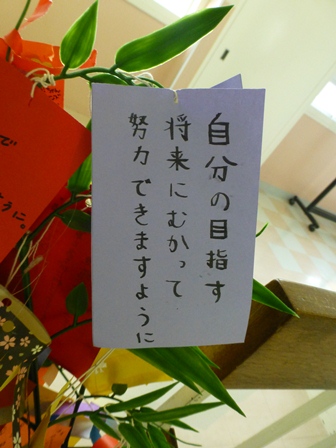 自分の目指す
将来にむかって
努力できますように
で
ように。